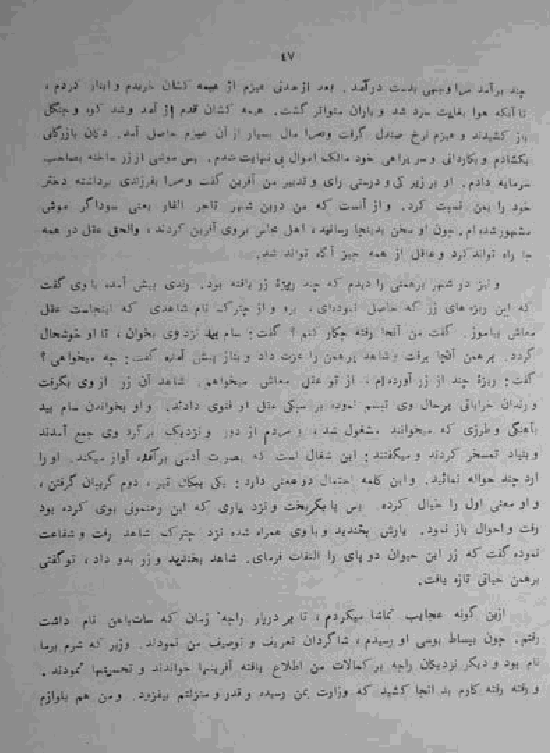 ٤٧
چند برآمد مرا وجهی بدست درآمد. بعد از مدتی هیزم از همه کشان خریدم و انبار کردم،
تا آنکه هوا بغایت سرد شد و باران متواتر گشت. همه کشان قدم از آمد و شد کوه و جنگل
باز کشیدند و هیزم نرخ صندل گرفت و مرا مال بسیار از آن هیزم حاصل آمد. دکان بازرگانی
بگشادم و بکاردانی و سر براهی خود مالک اموال بی نهایت شدم. پس موشی از زر ساخته بصاحب
سرمایه دادم. او بر زیرکی و درستی رای و تدبیر من آفرین گفت و مرا بفرزندی برداشته دختر
خود را بمن نسبت کرد. و از آنست که من درین شهر تاجر الفار یعنی سوداگر موش
مشهور شده‌ام. چون او سخن بدینجا رسانید، اهل مجلس بروی آفرین کردند، والحق عقل در همه
جا راه تواند کرد و عاقل از همه چیز آگه تواند شد.
و نیز در شهر برهمنی را دیدم که چند ریزهٔ زر یافته بود. رندی پیش آمده با وی گفت
که این ریزه‌های زر که حاصل نموده‌ای، برو و از چترک نام شاهدی که اینجاست عقل
معاش بیاموز. گفت من آنجا رفته چکار کنم؟ گفت: سام بید نزد وی بخوان، تا او خوشحال
گردد. برهمن آنجا برفت و شاهد برهمن را عزت داد و بناز پیش آمده گفت: چه میخواهی؟
گفت: ریزهٔ چند از زر آورده‌ام، از تو عقل معاش میخواهم. شاهد آن زر از وی بگرفت
و رندان خراباتی برحال وی تبسم نموده بر سبکی عقل او فتوی دادند. و او بخواندن سام بید
بآهنگی و طرزی که میخوانند مشغول شد، و مردم از دور و نزدیک برگرد وی جمع آمدند
و بنیاد تمسخر کردند و میگفتند: این شغال است که بصورت آدمی برآمده آواز میکند. او را
ارد چند حواله نمائید. و این کلمه احتمال دو معنی دارد: یکی پیکان تیر، دوم گریبان گرفتن،
و او معنی اول را خیال کرده پس پا بگریخت و نزد یاری که این رهنمونی بوی کرده بود
رفت و احوال باز نمود. یارش بخندید و با وی همراه شده نزد چترک شاهد رفت و شفاعت
نموده گفت که زر این حیوان دو پای را التفات فرمای. شاهد بخندید و زر بدو داد، تو گفتی
برهمن حیاتی تازه یافت.
ازین گونه عجایب تماشا میکردم، تا بر دربار راجهٔ زمان که سات‌باهن نام داشت
رفتم. چون ببساط بوسی او رسیدم، شاگردان تعریف و توصیف من نمودند. وزیر که شرم برما
نام بود و دیگر نزدیکان راجه بر کمالات من اطلاع یافته آفرینها خواندند و تحسینها نمودند.
و رفته رفته کارم بد انجا کشید که وزارت بمن رسیده و قدر و منزلتم بیفزود. و من هم بلوازم